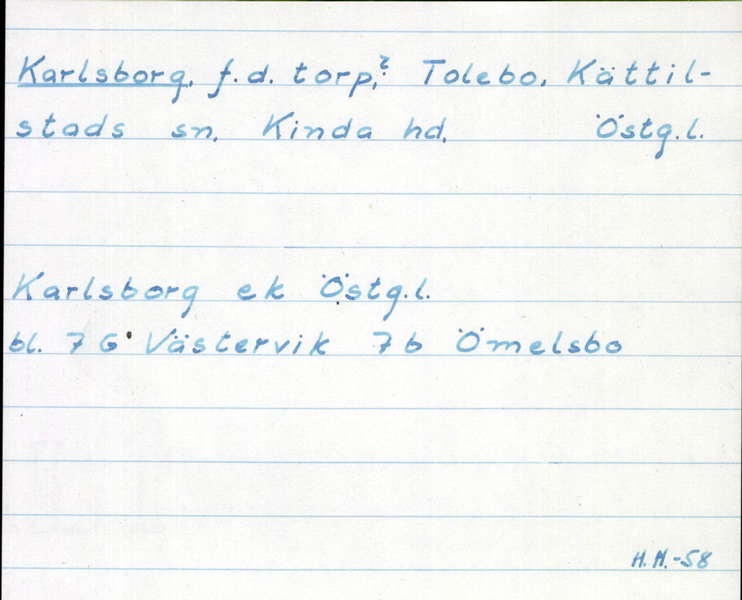 Karlsborg, f.d. torp,? Tolebo, Kättil-
stads sn, Kinda hd, Östg.l.
Karlsborg ek Östg.l.
bl. 7 G Västervik 7b Ömelsbo
H.M.-58